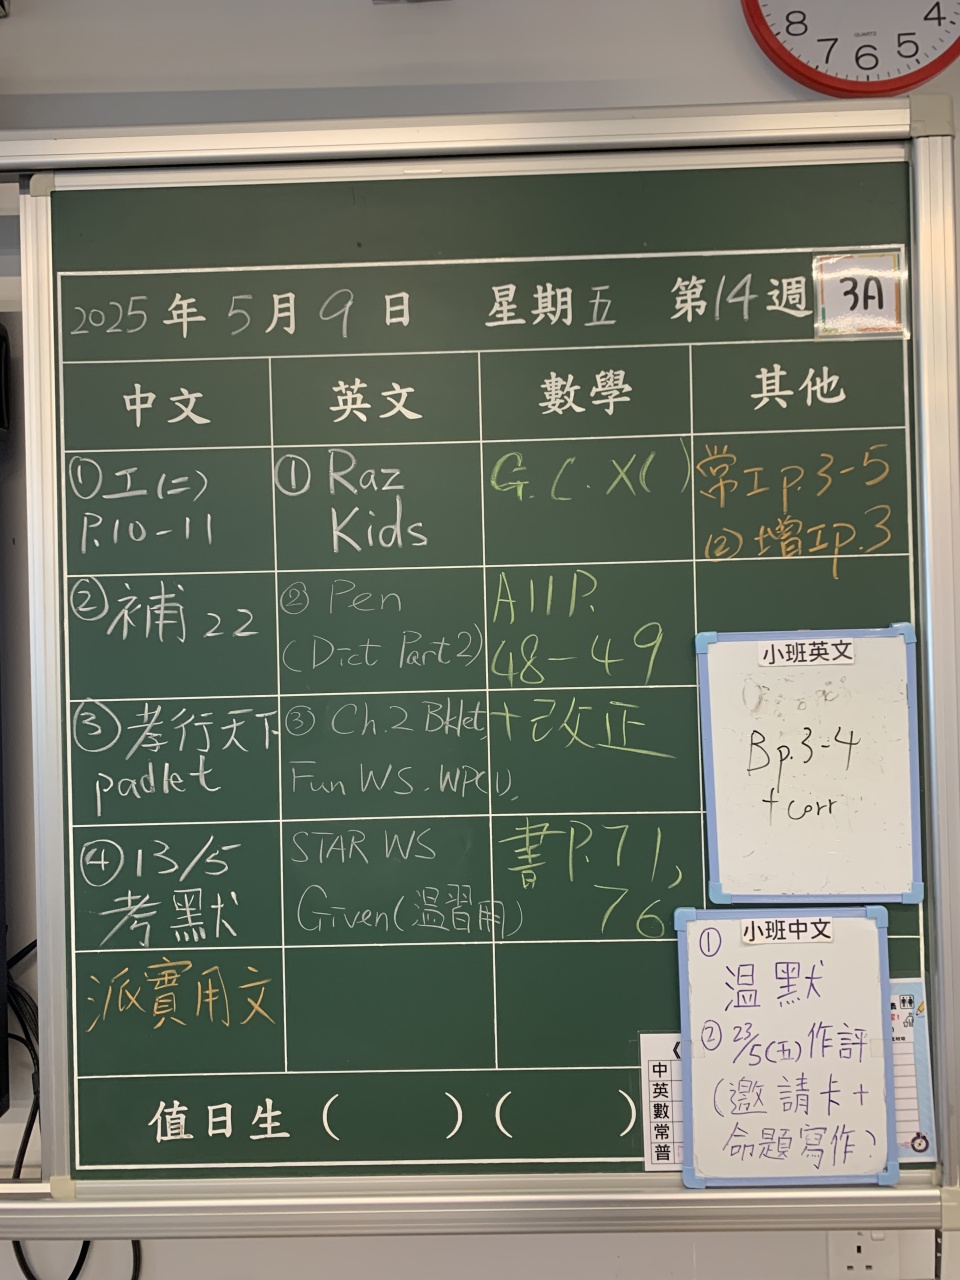 8 7 6 5 4
QUARTZ
2025年5月9日 星期五 第14週 3A
中文 英文 數學 其他
①工(二)
P.10-11
②補22
③孝行天下
padlet
④13/5
考默
派實用文
① Raz
Kids
② Pen
(Dict Part 2)
③ Ch.2 Bklet,
Fun WS. WP(1).
STAR WS
Given(溫習用)
G.C. X( )
A11P.
48-49
+改正
書P.71,
76
常工p.3-5
(2)增工p.3
小班英文
Bp.3-4
+corr
小班中文
①
溫默
②23/5(五)作評
(邀請卡+
命題寫作)
值日生( )( )
中
英
數
常
普